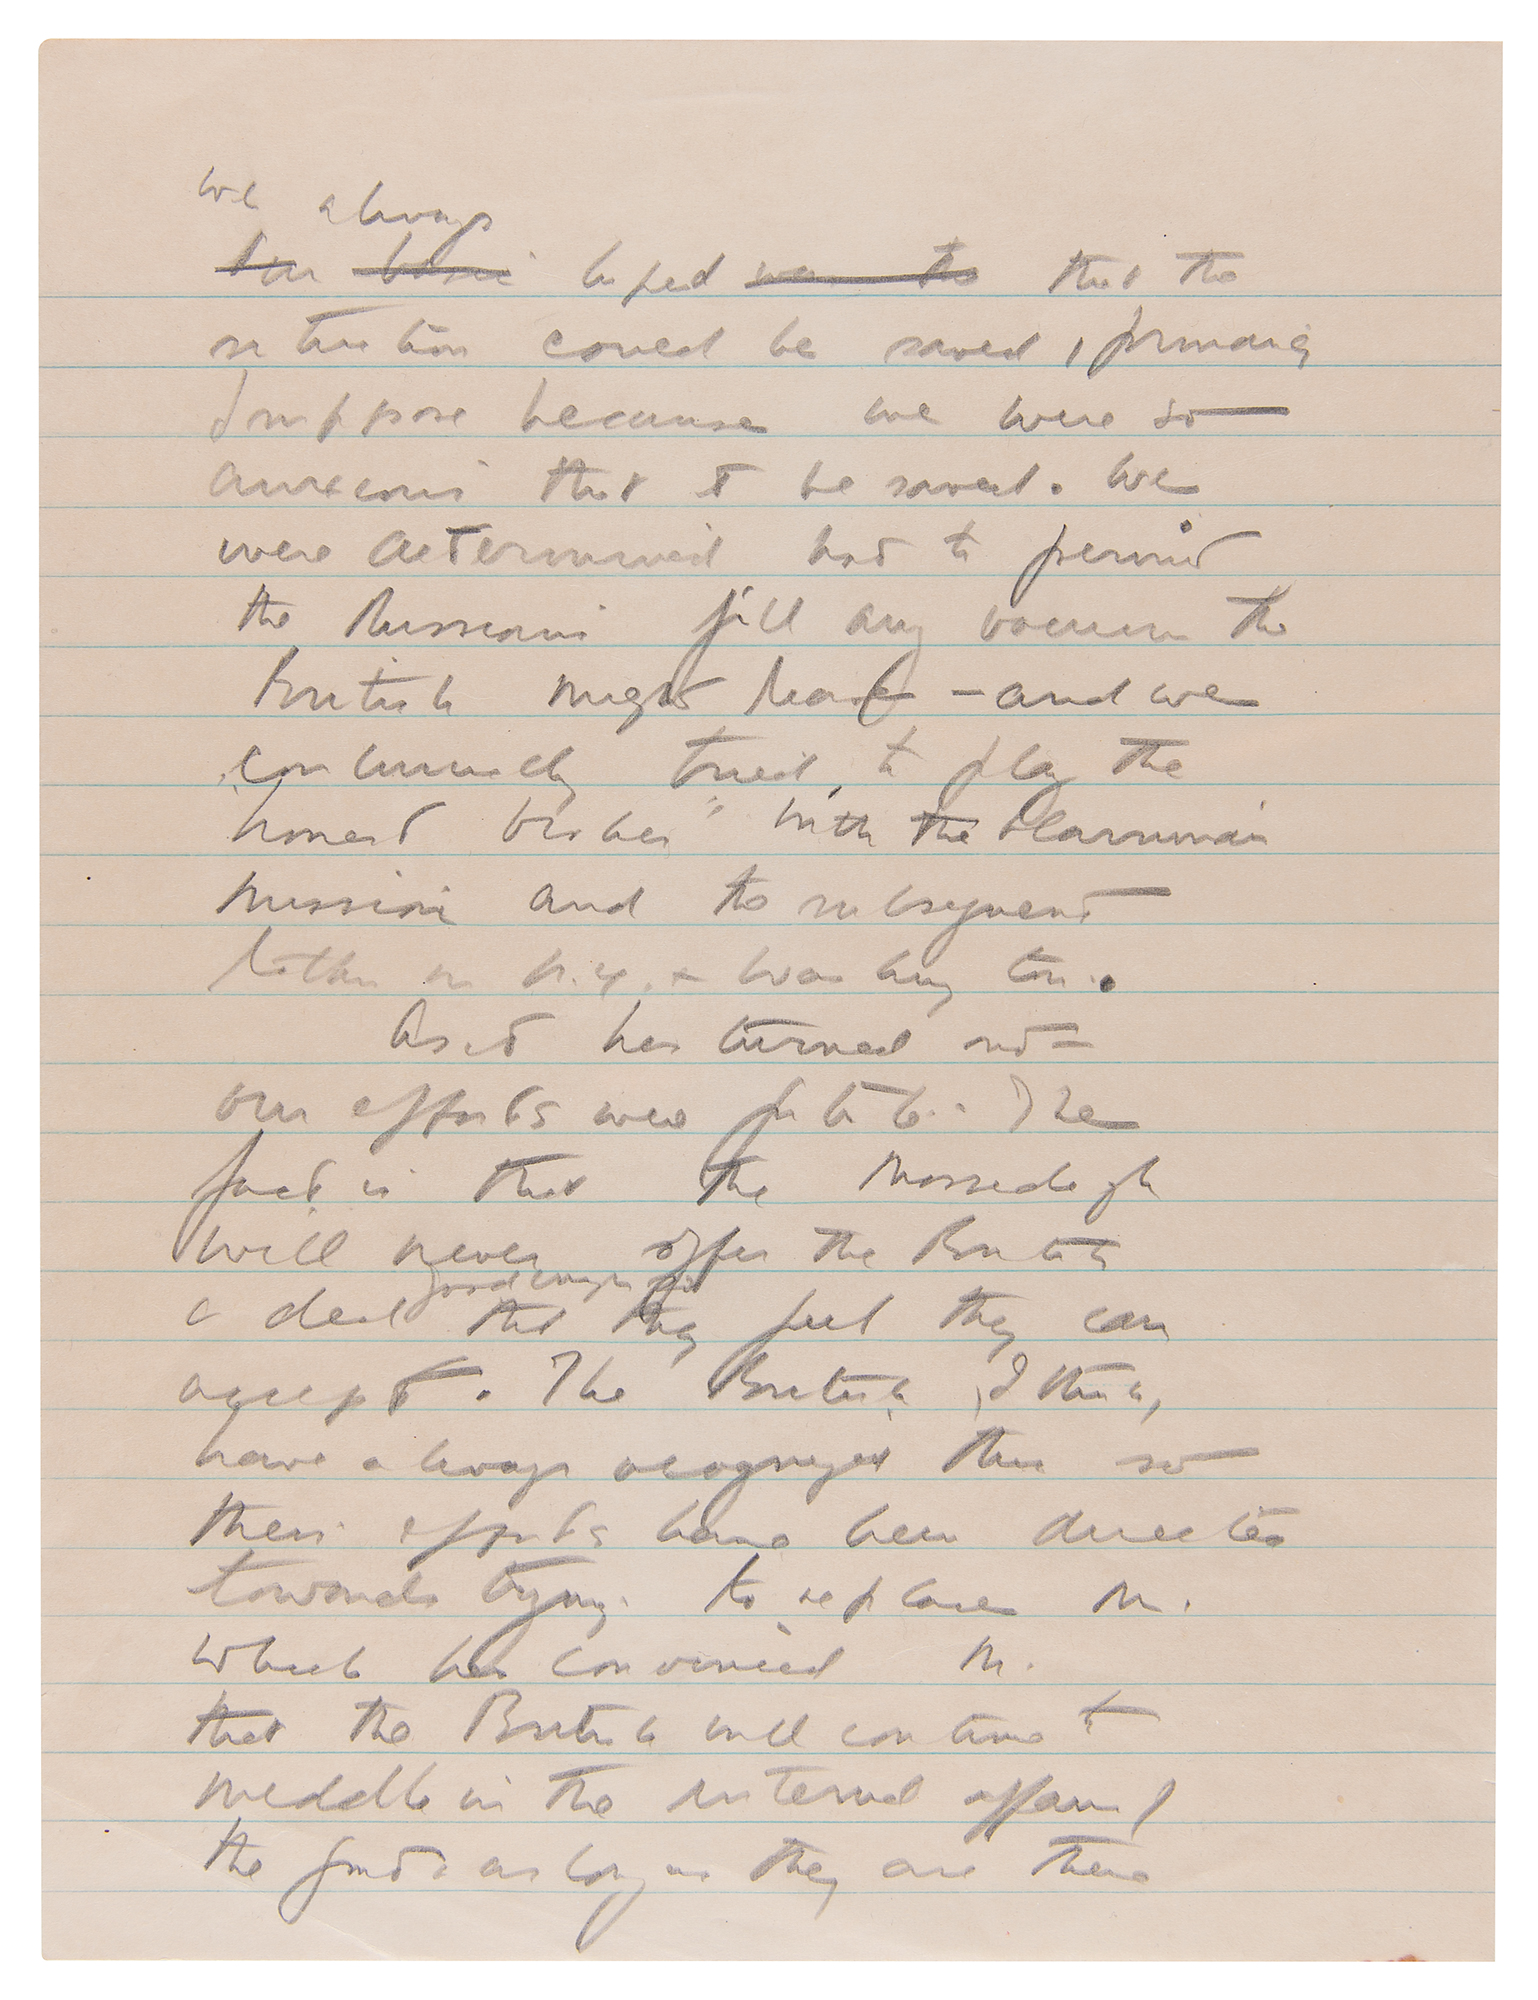 we always
Our basic hoped was the that the
situation could be saved, primarily
I suppose because we were so
anxious that it be saved. We
were determined not to permit
the Russians fill any vacuum the
British might leave - and we
continually tried to play the
honest broker" with the Harriman
mission and to subsequent
talks in N.Y. & Washington.
As it has turned out -
our efforts were futile. The
fact is that the Mossedegh
will never offer the British
good enough for
a deal that they feel they can
accept. The British, I think,
have always recognized this so
their efforts have been directed
towards trying to replace M.
which has convinced M.
that the British will continue to
meddle in the internal affairs of
the as long as they are there